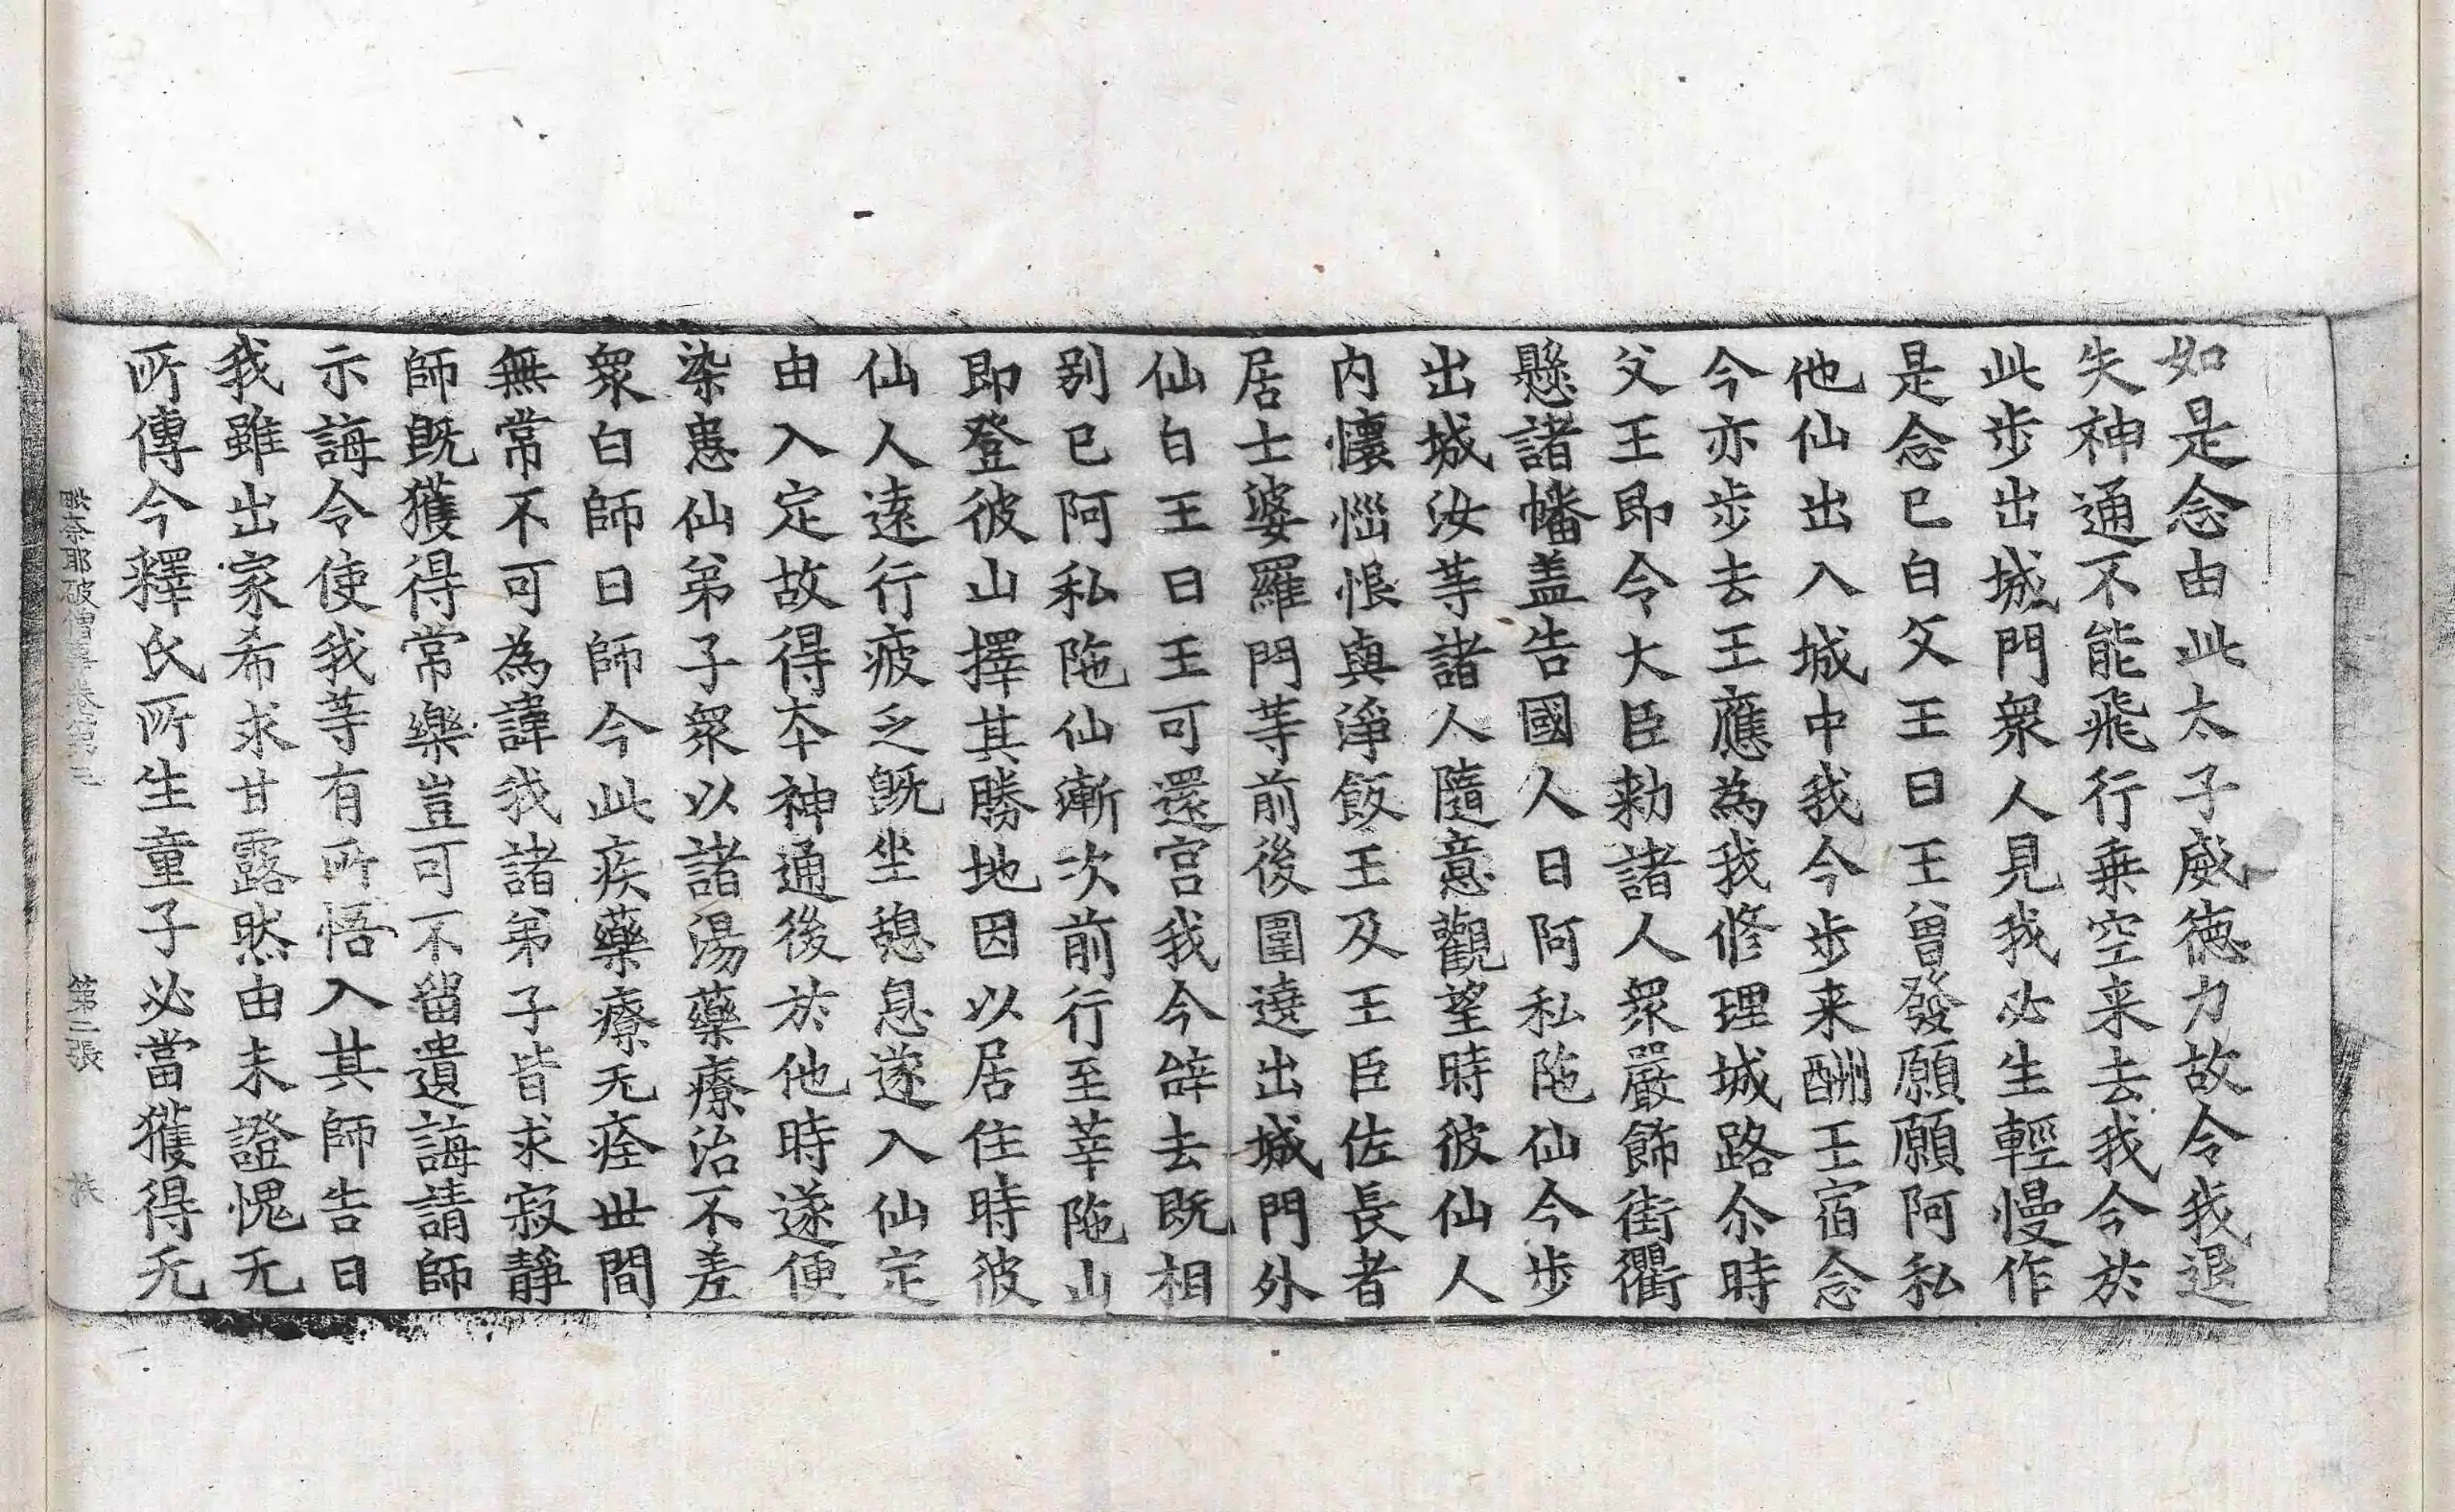 如是念由此太子威徳力故令我退
失神通不能飛行乗空来去我今於
此步出城門衆人見我必生輕慢作
是念已白父王曰王曾發願願阿私
他仙出入城中我今步来酬王宿念
今亦步去王應為我修理城路尒時
父王即令大臣勑諸人衆嚴飾街衢
懸諸幡盖告國人曰阿私陁仙今步
出城汝䓁諸人隨意觀望時彼仙人
内懷惱恨與淨飯王及王臣佐長者
居士婆羅門䓁前後圍遶出城門外
仙白王曰王可還宫我今辝去既相
别已阿私陁仙漸次前行至莘陁山
即登彼山擇其勝地因以居住時彼
仙人遠行疲乏既坐憩息遂入仙定
由入定故得夲神通後於他時遂便
染患仙弟子衆以諸湯藥療治不差
衆白師曰師今此疾藥療无痊世間
無常不可為諱我諸弟子皆求寂静
師既獲得常樂豈可不留遺誨請師
示誨令使我䓁有所悟入其師告曰
我雖出家希求甘露然由未證愧无
所傳今釋氏所生童子必當獲得无
毗奈耶破僧事卷第三 第二張